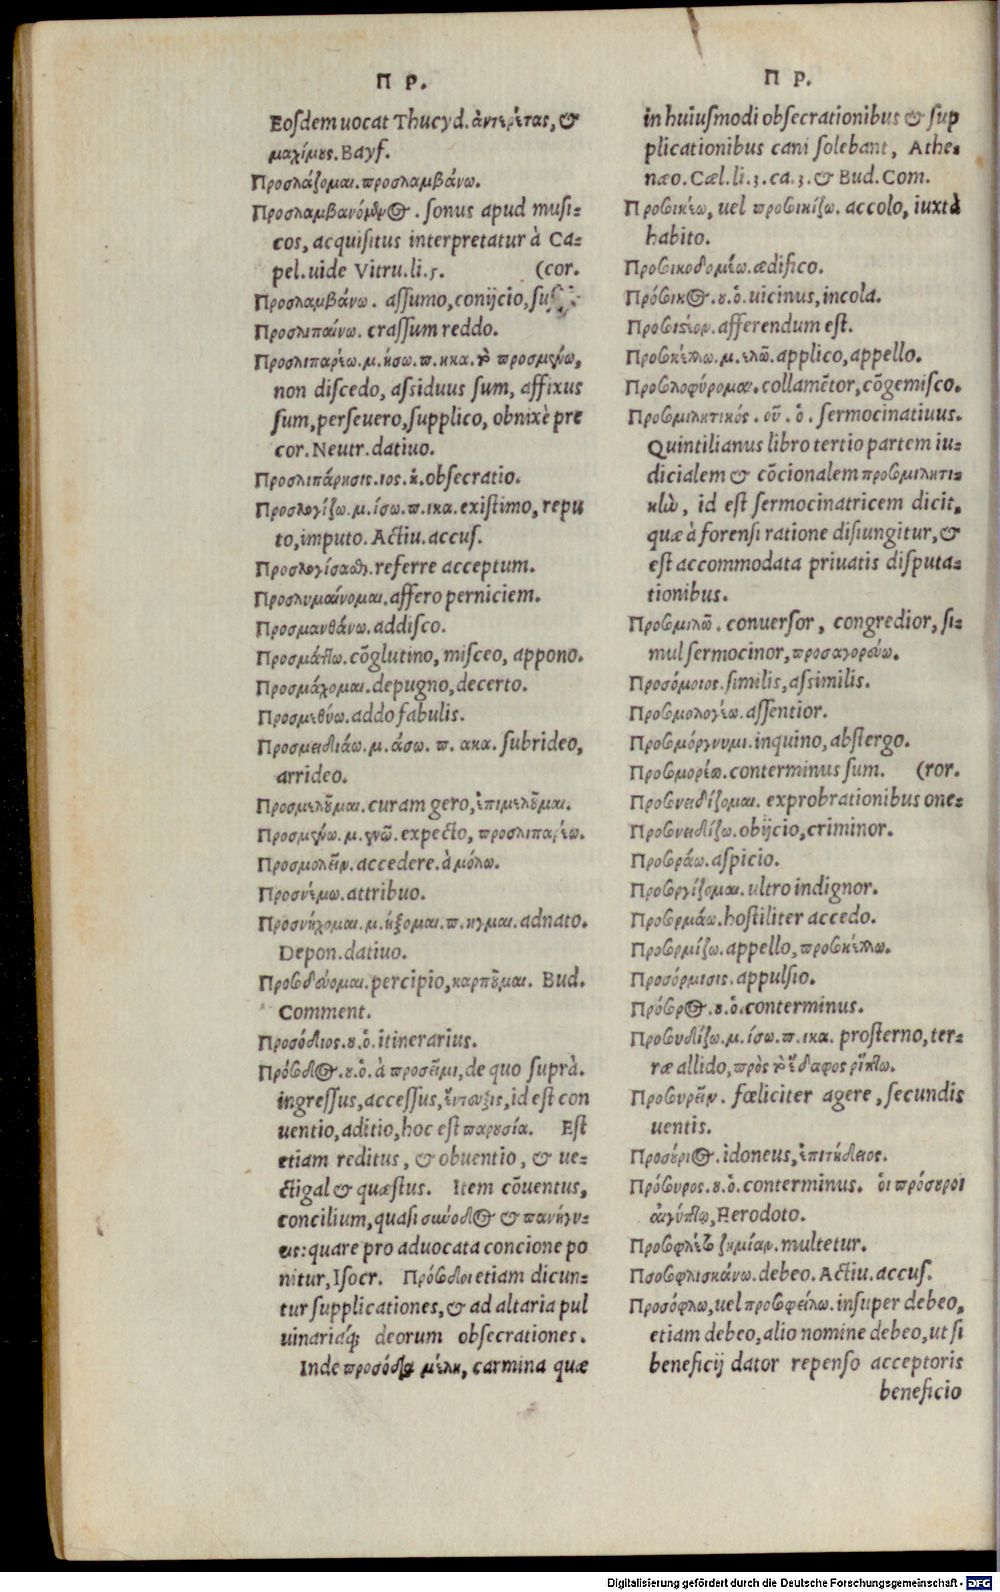 Π Ρ.
Eosdem uocat Thucyd. ἀντηρέτας, &
μαχίμους. Bayf.
Προσλάζομαι. προσλαμβάνω.
Προσλαμβανόμενος. sonus apud musi-
cos, acquisitus interpretatur à Ca-
pel. uide Vitru. li. 5. (cor.
Προσλαμβάνω. assumo, conijcio,
Προσλιπαίνω. crassum reddo.
Προσλιπαρέω. μ. ήσω. π. ηκα. καὶ προσμένω,
non discedo, assiduus sum, affixus
sum, perseuero, supplico, obnixè pre
cor. Neutr. datiuo.
Προσλιπάρησις. ιος. ἡ. obsecratio.
Προσλογίζω. μ. ίσω. π. ικα. existimo, repu
to, imputo. Actiu. accus.
Προσλογίσασθαι. referre acceptum.
Προσλυμαίνομαι. affero perniciem.
Προσμανθάνω. addisco.
Προσμάττω. cōglutino, misceo, appono.
Προσμάχομαι. depugno, decerto.
Προσμυθύω. addo fabulis.
Προσμειδιάω. μ. άσω. π. ακα. subrideo,
arrideo.
Προσμελοῦμαι. curam gero, ἐπιμελοῦμαι.
Προσμένω. μ. ενῶ. expecto, προσλιπαρέω.
Προσμολεῖν. accedere. à μόλω.
Προσνέμω. attribuo.
Προσνήχομαι. μ. ήξομαι. π. ηγμαι. adnato.
Depon. datiuo.
Προσοδεύομαι. percipio, καρποῦμαι. Bud.
Comment.
Προσόδιος. ου. ὁ. itinerarius.
Πρόσοδος. ου. ὁ. à πρόσειμι, de quo suprà.
ingressus, accessus, ἔντευξις, id est con
uentio, aditio, hoc est παρουσία. Est
etiam reditus, & obuentio, & ue-
ctigal & quæstus. Item cōuentus,
concilium, quasi σύνοδος & πανήγυ-
εις: quare pro aduocata concione po
nitur, Isocr. Πρόσοδοι etiam dicun-
tur supplicationes, & ad altaria pul
uinariaq́; deorum obsecrationes.
Inde προσόδια μέλη, carmina quæ
Π Ρ.
in huiusmodi obsecrationibus & sup
plicationibus cani solebant, Athe-
næo. Cæl. li. 3. ca. 3. & Bud. Com.
Προσοικέω, uel προσοικίζω. accolo, iuxtà
habito.
Προσοικοδομέω. ædifico.
Πρόσοικος. ου. ὁ. uicinus, incola.
Προσοιστέον. afferendum est.
Προσοκέλλω. μ. ελῶ. applico, appello.
Προσολοφύρομαι. collamētor, cōgemisco.
Προσομιλητικός. οῦ. ὁ. sermocinatiuus.
Quintilianus libro tertio partem iu-
dicialem & cōcionalem προσομιλητι-
κὴν, id est sermocinatricem dicit,
quæ à forensi ratione disiungitur, &
est accommodata priuatis disputa-
tionibus.
Προσομιλῶ. conuersor, congredior, si-
mul sermocinor, προσαγορεύω.
Προσόμοιος. similis, assimilis.
Προσομολογέω. assentior.
Προσομόργνυμι. inquino, abstergo.
Προσομορέω. conterminus sum. (ror.
Προσονειδίζομαι. exprobrationibus one-
Προσονειδίζω. obijcio, criminor.
Προσοράω. aspicio.
Προσοργίζομαι. ultro indignor.
Προσορμάω. hostiliter accedo.
Προσορμίζω. appello, προσοκέλλω.
Προσόρμισις. appulsio.
Πρόσορος. ου. ὁ. conterminus.
Προσουδίζω. μ. ίσω. π. ικα. prosterno, ter-
ræ allido, πρὸς τὸ ἔδαφος ῥίπτω.
Προσουρεῖν. fœliciter agere, secundis
uentis.
Προσούριος. idoneus, ἐπιτήδειος.
Πρόσουρος. ου. ὁ. conterminus. οἱ πρόσουροι
αἰγύπτῳ, Herodoto.
Προσοφλέτω ζημίαν. multetur.
Πσοσοφλισκάνω. debeo. Actiu. accus.
Προσόφλω, uel προσοφείλω. insuper debeo,
etiam debeo, alio nomine debeo, ut si
beneficij dator repenso acceptoris
beneficio
Digitalisierung gefördert durch die Deutsche Forschungsgemeinschaft - DFG